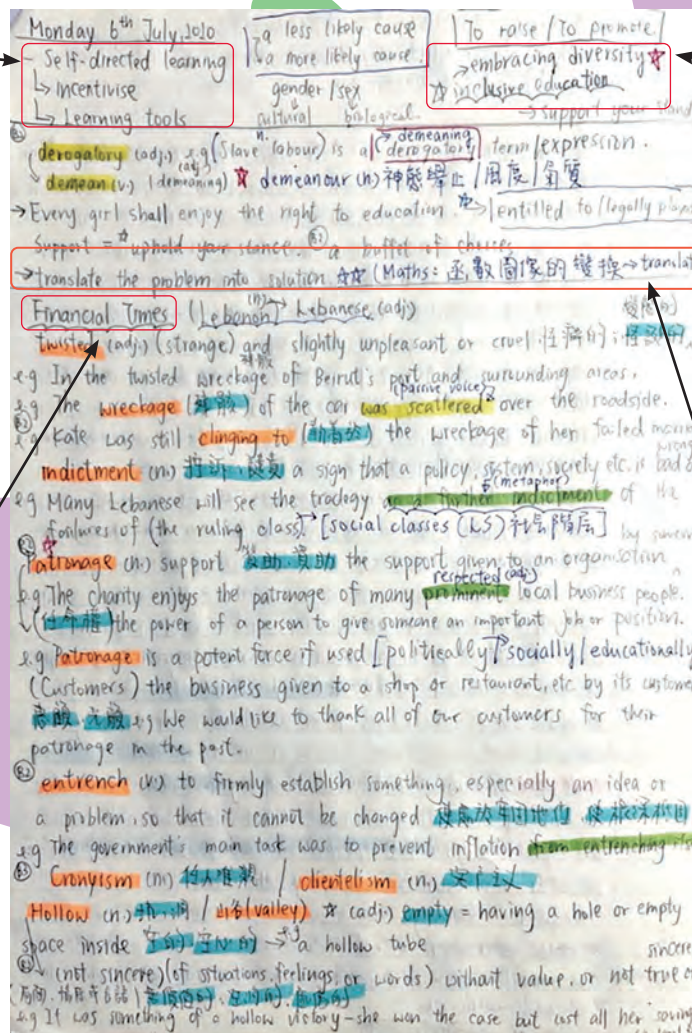 Monday 6th July, 2020
- Self-directed learning
↳ Incentivise
↳ Learning tools
↳ a less likely cause
↳ a more likely cause
gender / sex
cultural biological
To raise / To promote
→ embracing diversity ☆
☆ inclusive education
→ support your
derogatory (adj.) e.g (Slave labour) is a (demeaning derogatory) term / expression.
n.
(adj)
demean (v.) (demeaning) ☆ demeanour (n) 神態舉止 / 風度 / 氣質
→ Every girl shall enjoy the right to education. → entitled to / legally
Support = ☆ uphold your stance. a buffet of choices
→ translate the problem into solution ☆☆ (Maths: 函數圖像的變換 → translat
Financial Times (Lebanon (n) → Lebanese (adj)
twisted (adj.) (strange) and slightly unpleasant or cruel 怪癖的;
e.g In the twisted wreckage of Beirut's port and surrounding areas.
(passive voice)
e.g The wreckage (殘骸) of the car was scattered over the roadside.
e.g Kate was still clinging to the wreckage of her failed
indictment (n.) a sign that a policy, system, society etc. is bad
(metaphor)
e.g Many Lebanese will see the tradegy as a further indictment of the
failures of (the ruling class) → [social classes (LS) 社会階层]
Patronage (n.) support 資助 the support given to an organisation
respected (adj)
e.g The charity enjoys the patronage of many prominent local business people.
(任命權) the power of a person to give someone an important job or position.
e.g Patronage is a potent force if used [politically] → socially / educationally
(Customers) the business given to a shop or restaurant, etc by its custome
惠顧, 光顧 e.g We would like to thank all of our customers for their
patronage in the past.
entrench (v.) to firmly establish something, especially an idea or
a problem, so that it cannot be changed
e.g The government's main task was to prevent inflation from entrenching its
Cronyism (n.) 任人唯親 / clientelism (n.)
Hollow (n.) 洞 / 山谷 (valley) ☆ (adj.) empty = having a hole or empty
space inside 空的, 空心的 → e.g a hollow tube
sincere
(not sincere) (of situations, feelings, or words) without value, or not true or
e.g It was something of a hollow victory - she won the case but lost all her saving